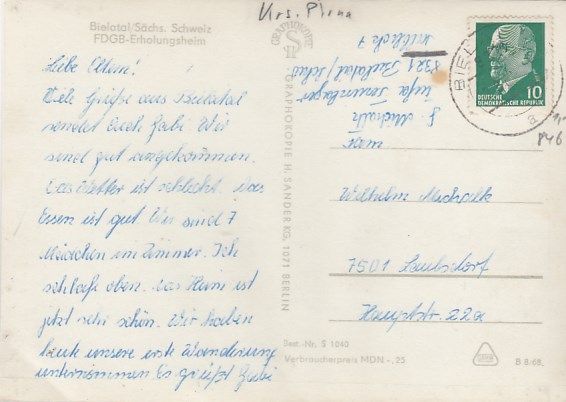 Bielatal/Sächs. Schweiz
FDGB-Erholungsheim
Liebe Eltern!
Viele Grüße aus Bielatal
sendet Euch Gabi. Wir
sind gut angekommen.
Das Wetter ist schlecht. Das
Essen ist gut. Wir sind 7
Mädchen im Zimmer. Ich
schlafe oben. Das Heim ist
jetzt sehr schön. Wir haben
heute unsere erste Wanderung
unternommen. Es grüßt Gabi
Krs. Pirna
8321 Bielatal
G. Michalk
GRAPHOKOPIE
GRAPHOKOPIE H. SANDER KG, 1071 BERLIN
10
DEUTSCHE
DEMOKRATISCHE REPUBLIK
BIEL
846
Wilhelm Michalk
7501 Laubsdorf
Hauptstr. 22a
Best.-Nr. S 1040
Verbraucherpreis MDN -,25
B 8/68